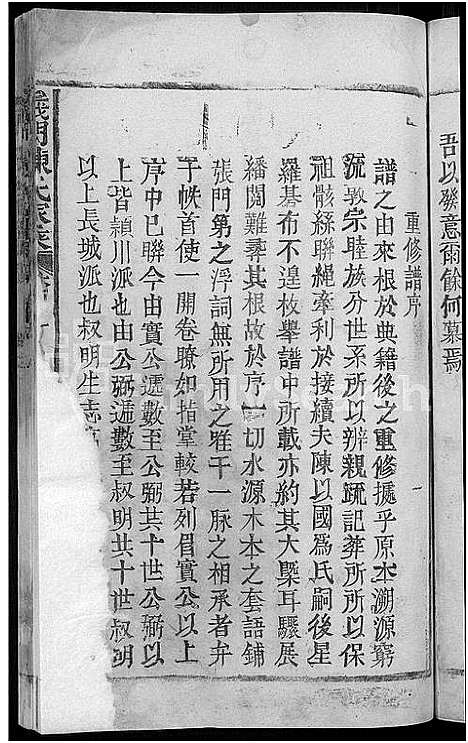 吾以發意爾餘何慕焉
重修譜序
譜之由來根於典籍後之重修攄乎原本溯源窮
流敦宗睦族分世系所以辨親疏記葬所所以保
祖骸絲聯絕牽利於接續夫陳以國爲氏嗣後星
羅碁布不遑枚舉譜中所載亦約其大槩耳驟展
繙閱難尋其根故於序一切水源木本之套語鋪
張門第之浮詞無所用之唯于一脉之相承者弁
于帙首使一開卷瞭如指掌較若列眉實公以上
序中已聯今由實公遞數至公弼共十世公弼以
上皆頴川派也由公弼遞數至叔明共十世叔明
以上長城派也叔明生志
義門陳氏家乗